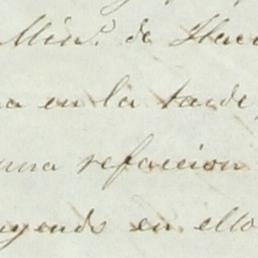 Min.º de Hac
a en la tarde,
una refaccion
yendo en ello